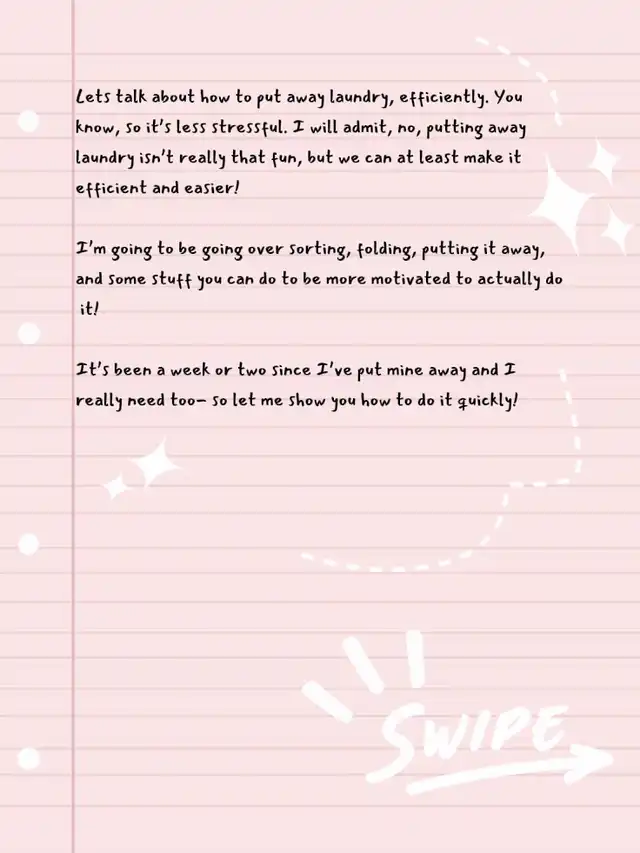 Lets talk about how to put away laundry, efficiently. You
know, so it's less stressful. I will admit, no, putting away
laundry isn't really that fun, but we can at least make it
efficient and easier!
I'm going to be going over sorting, folding, putting it away,
and some stuff you can do to be more motivated to actually do
it!
It's been a week or two since I've put mine away and I
really need too- so let me show you how to do it quickly!
SWIPE